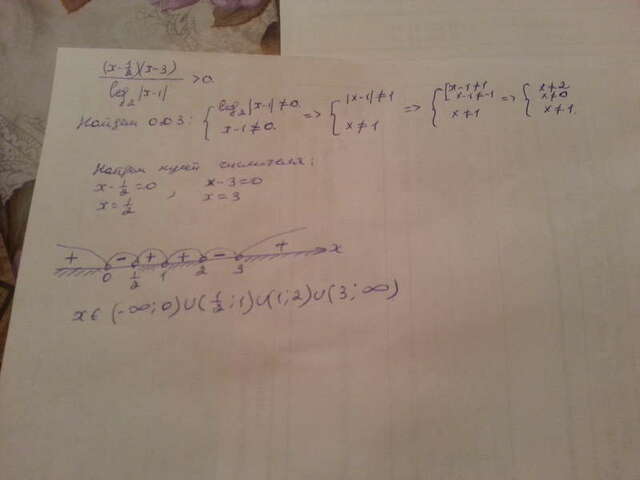 (x-1/2)(x-3) / log₂|x-1| > 0
Найдем ОДЗ: { log₂|x-1| ≠ 0. x-1 ≠ 0. => { |x-1| ≠ 1 x ≠ 1 => { [ x-1 ≠ 1 x-1 ≠ -1 x ≠ 1 => { x ≠ 2 x ≠ 0 x ≠ 1.
Найдем нули числителя:
x - 1/2 = 0 , x - 3 = 0
x = 1/2 x = 3
+ - + + - + x
0 1/2 1 2 3
x ∈ (-∞; 0) ∪ (1/2; 1) ∪ (1; 2) ∪ (3; ∞)